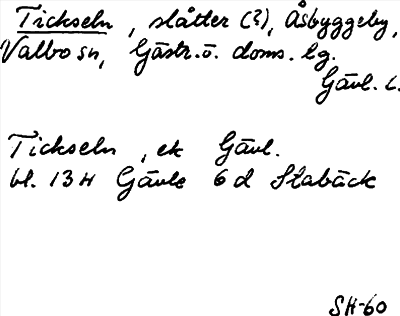 Tickseln, slåtter (?), Åsbyggeby,
Valbo sn, Gästr. ö. doms. lg.
Gävl. l.
Tickseln, ek Gävl.
bl. 13H Gävle 6d Stabäck
SH-60